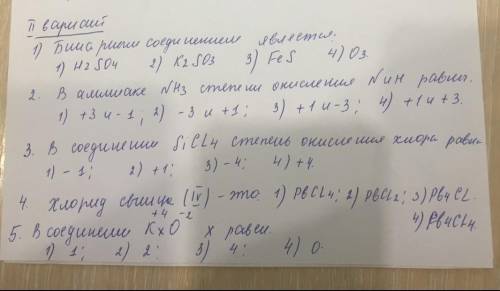 II вариант
1) Бинарным соединением является.
1) H2SO4 2) K2SO3 3) FeS 4) O3.
2. В аммиаке NH3 степени окисления N и H равны.
1) +3 и -1; 2) -3 и +1; 3) +1 и -3; 4) +1 и +3.
3. В соединении SiCl4 степень окисления хлора равна
1) -1; 2) +1; 3) -4; 4) +4.
4. Хлорид свинца (IV) - это 1) PbCl4; 2) PbCl2; 3) Pb4Cl.
4) Pb4Cl4.
+4 -2
5. В соединении KxO x равен.
1) 1; 2) 2; 3) 4; 4) 0.